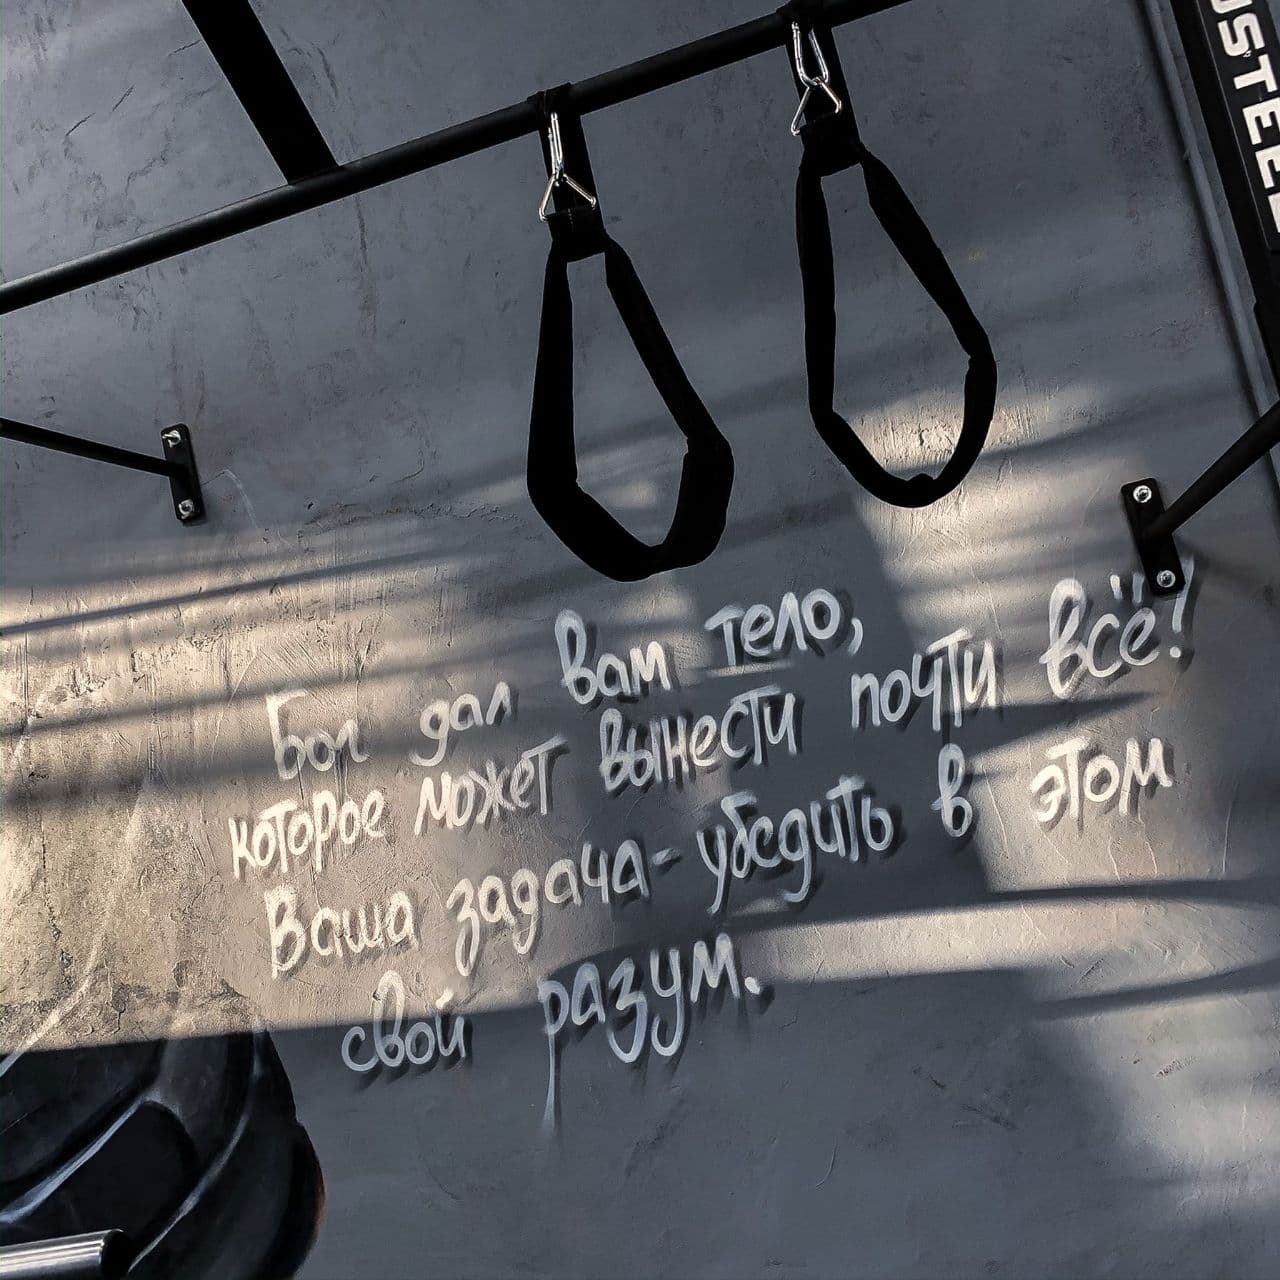 Бог дал вам тело,
которое может вынести почти всё!
Ваша задача - убедить в этом
свой разум.
USTEEL